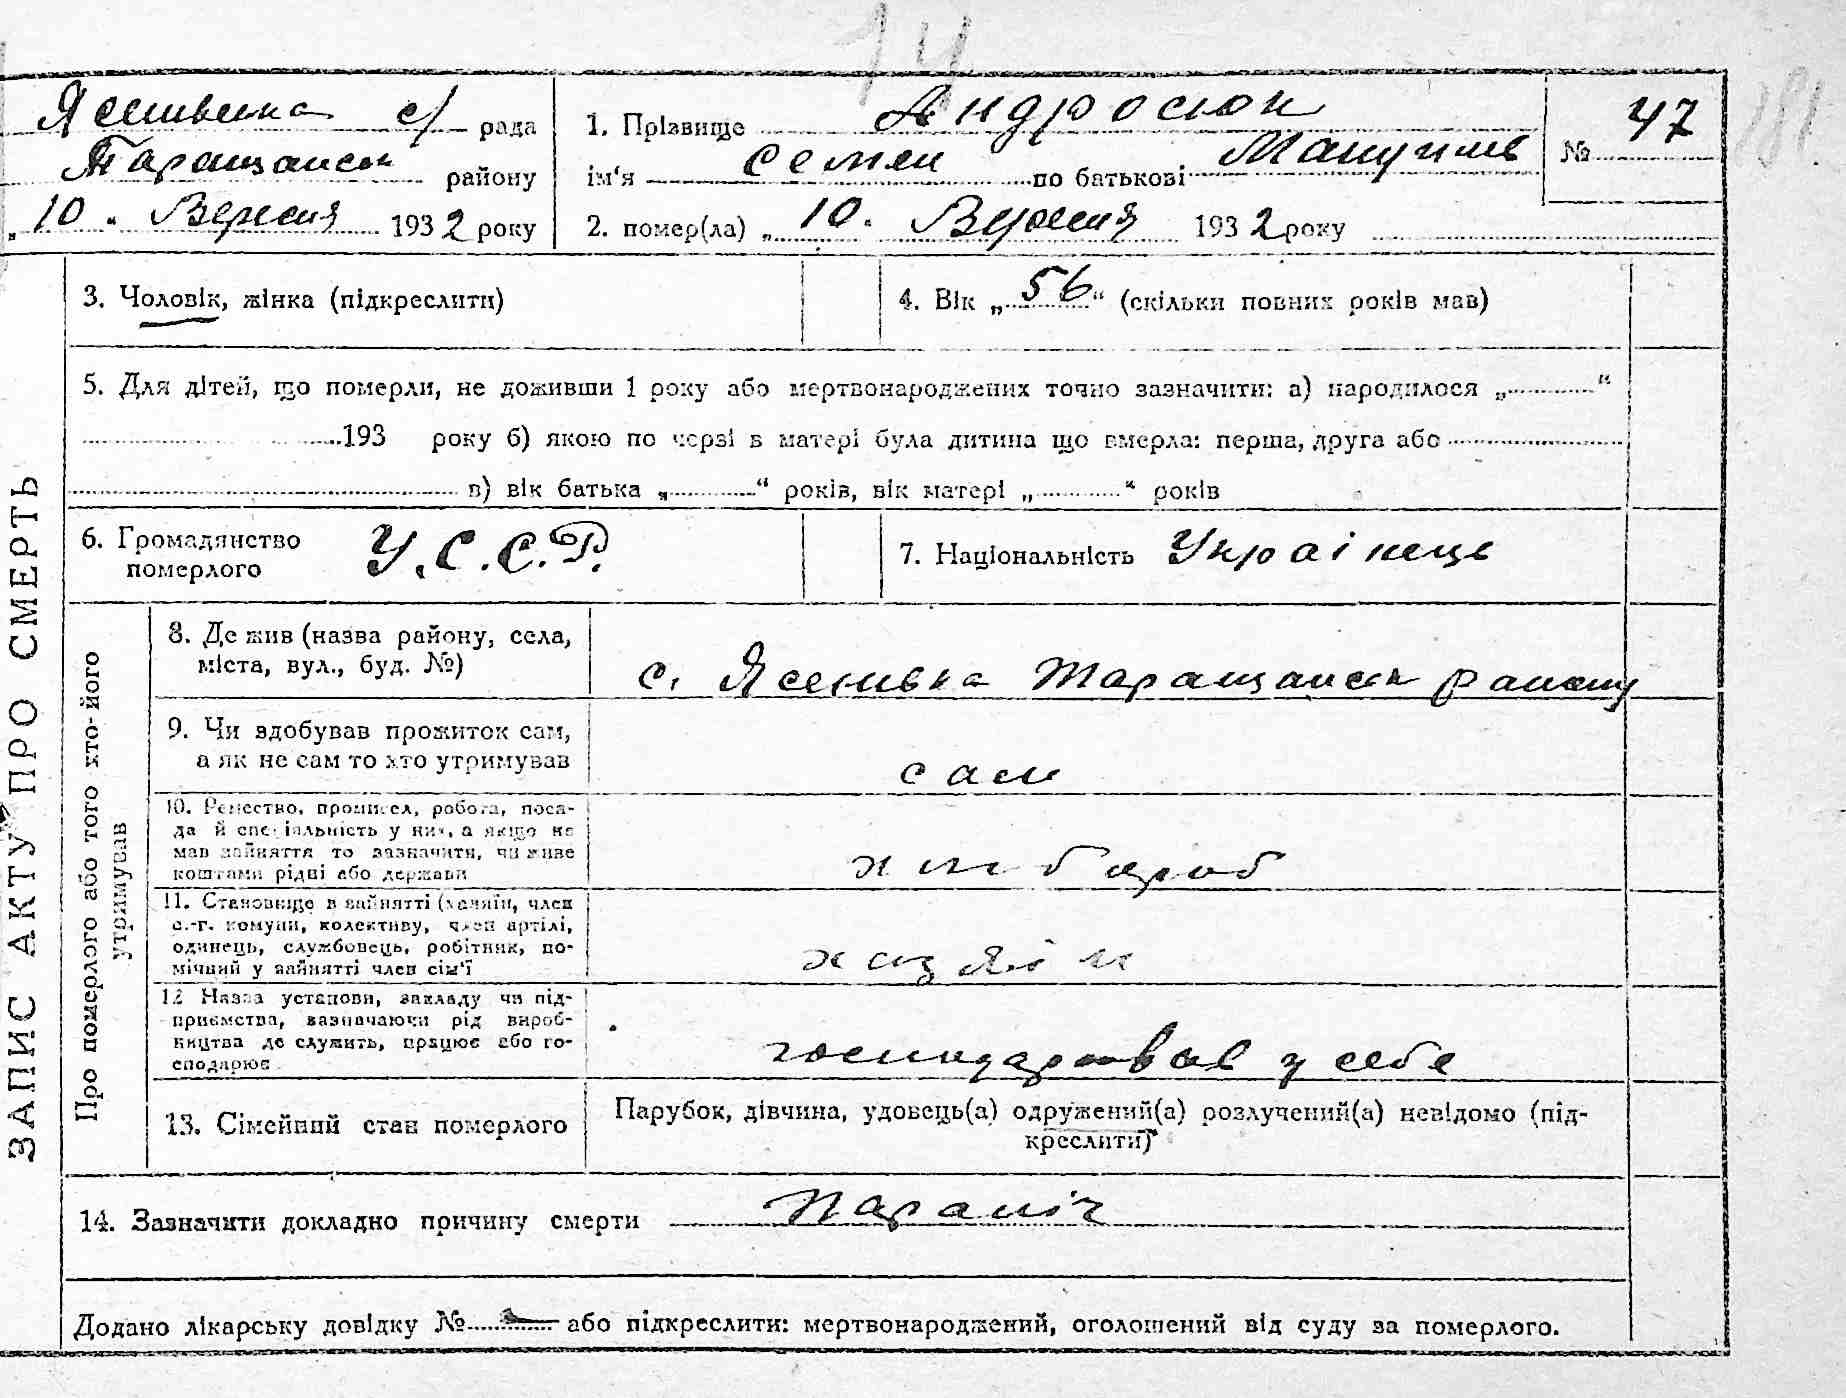 74
Ясенівска с/ рада
Таращанськ району
„10" Вересня 1932 року
1. Прізвище Андросюк
ім'я Семен по батькові Мануилів
№ 47
181
2. помер(ла) „10. Вересня 1932 року
3. Чоловік, жінка (підкреслити)
4. Вік „56" (скільки повних років мав)
5. Для дітей, що померли, не доживши 1 року або мертвонароджених точно зазначити: а) народилося „ "
193 року б) якою по черзі в матері була дитина що вмерла: перша, друга або
в) вік батька „ " років, вік матері „ " років
6. Громадянство
померлого
У.С.С.Р.
7. Національність Українець
ЗАПИС АКТУ ПРО СМЕРТЬ
Про померлого або того хто-його
утримував
8. Де жив (назва району, села,
міста, вул., буд. №)
с. Ясенівка Таращанськ району
9. Чи здобував прожиток сам,
а як не сам то хто утримував
сам
10. Ремество, промисел, робота, поса-
да й спеціяльність у них, а якщо не
мав зайняття то зазначити, чи живе
коштами рідні або держави
хлібороб
11. Становище в зайнятті (хазяїн, член
с.-г. комуни, колективу, член артілі,
одинець, службовець, робітник, по-
мічний у зайнятті член сім'ї
хазяїн
12 Назва установи, закладу чи під-
приємства, зазначаючи рід вироб-
ництва де служить, працює або го-
сподарює
господарював у себе
13. Сімейний стан померлого
Парубок, дівчина, удовець(а) одружений(а) розлучений(а) невідомо (під-
креслити)
14. Зазначити докладно причину смерти параліч
Додано лікарську довідку № або підкреслити: мертвонароджений, оголошений від суду за померлого.